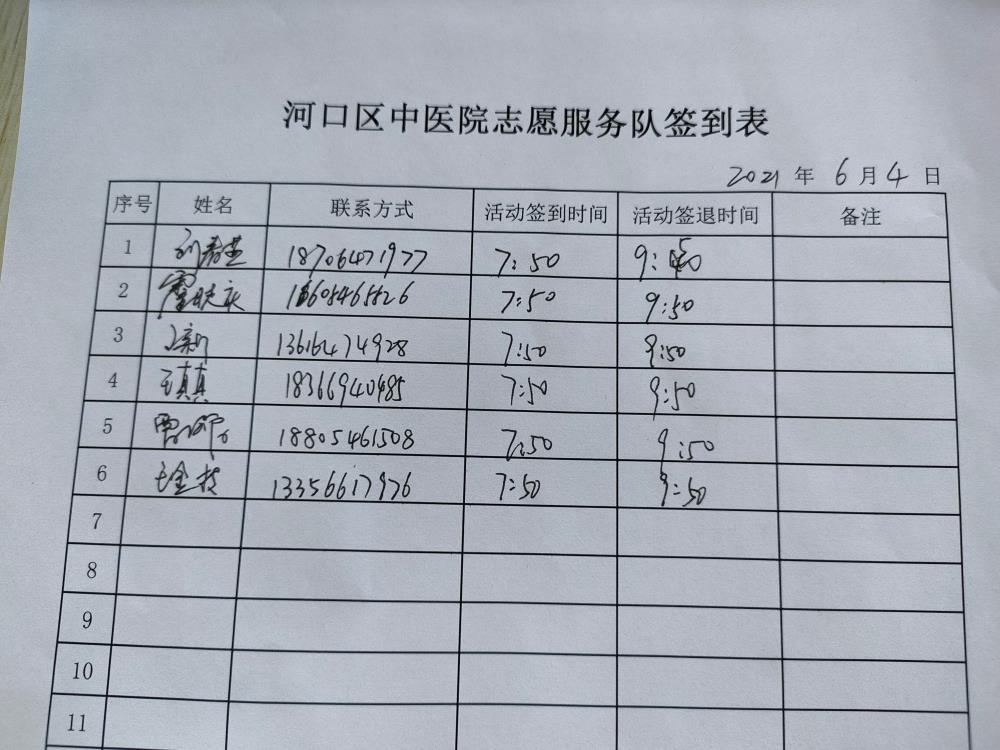 河口区中医院志愿服务队签到表
2021 年 6 月 4 日
序号 姓名 联系方式 活动签到时间 活动签退时间 备注
1 18706471977 7:50 9:50
2 7:50 9:50
3 13616474928 7:50 9:50
4 王真真 18366940485 7:50 9:50
5 18805461508 7:50 9:50
6 13356617976 7:50 9:50
7
8
9
10
11